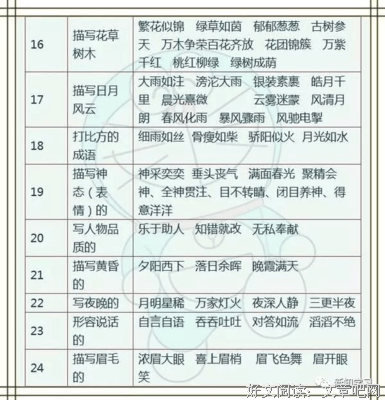 16 描写花草树木 繁花似锦 绿草如茵 郁郁葱葱 古树参
天 万木争荣百花齐放 花团锦簇 万紫
千红 桃红柳绿 绿树成荫
17 描写日月风云 大雨如注 滂沱大雨 银装素裹 皓月千
里 晨光熹微 云雾迷蒙 风清月
朗 春风化雨 暴风骤雨 风驰电掣
18 打比方的成语 细雨如丝 骨瘦如柴 骄阳似火 月光如水
19 描写神态(表情)的 神采奕奕 垂头丧气 满面春光 聚精会
神、全神贯注、目不转睛、闭目养神、得
意洋洋
20 写人物品质的 乐于助人 知错就改 无私奉献
21 描写黄昏的 夕阳西下 落日余晖 晚霞满天
22 写夜晚的 月明星稀 万家灯火 夜深人静 三更半夜
23 形容说话的 自言自语 吞吞吐吐 对答如流 滔滔不绝
24 描写眉毛的 浓眉大眼 喜上眉梢 眉飞色舞 眉开眼
笑
作文阅读:文章吧网